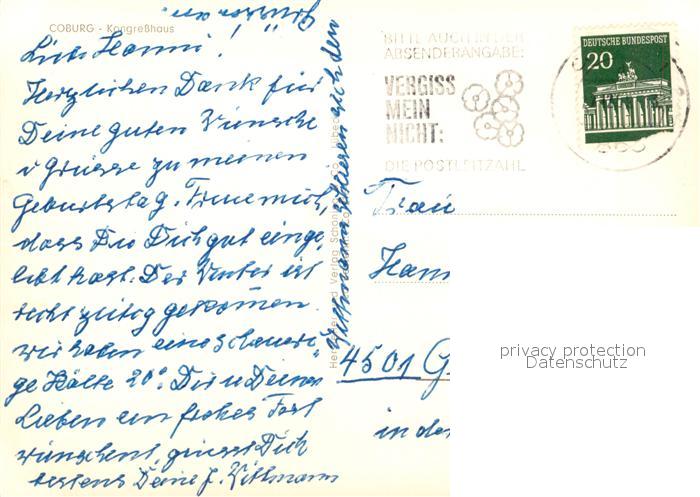 COBURG - Kongreßhaus
Liebe Hanni!
Herzlichen Dank für
Deine guten Wünsche
u Grüsse zu meinem
Geburtstag. Freue mich,
dass Du Dich gut einge-
lebt hast. Der Winter ist
recht zeitig gekommen.
Wir haben eine schauri-
ge Kälte 20°. Dir u Deinen
Lieben ein frohes Fest
wünschend, grüsst Dich
bestens Deine J. Wittmann
Wittmanns schliesen sich den
Grüssen an.
BITTE AUCH IN DER
ABSENDERANGABE:
VERGISS
MEIN
NICHT:
DIE POSTLEITZAHL
DEUTSCHE BUNDESPOST
20
Frau
4501 G
in der
privacy protection
Datenschutz